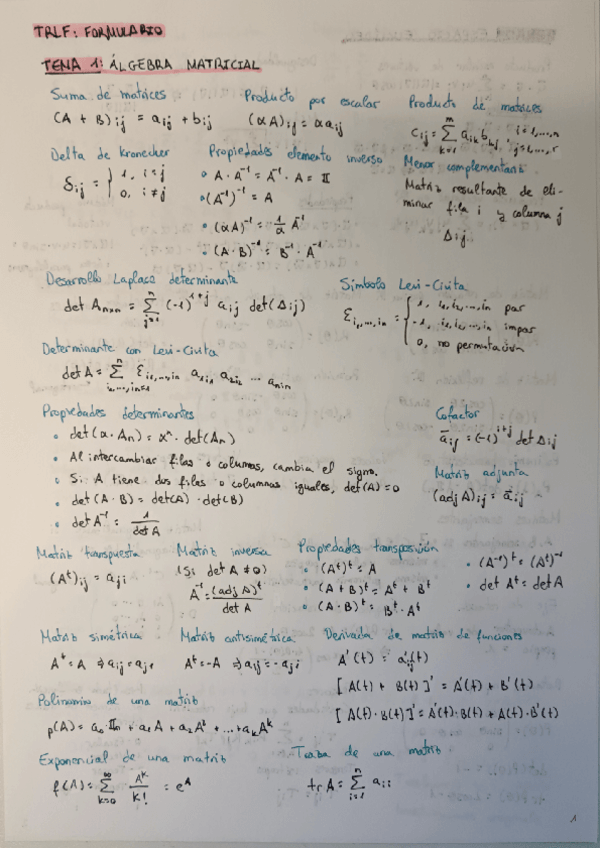 TRLF: FORMULARIO
TEMA 1: ÁLGEBRA MATRICIAL
Suma de matrices
(A + B)ij = aij + bij
Producto por escalar
(αA)ij = αaij
Producto de matrices
cij = Σ(k=1, m) aik bkj, i=1,...,n j=1,...,r
Delta de Kronecker
δij = { 1, i=j
0, i≠j
Propiedades elemento inverso
• A · A⁻¹ = A⁻¹ · A = 𝕀
• (A⁻¹)⁻¹ = A
• (αA)⁻¹ = 1/α A⁻¹
• (A · B)⁻¹ = B⁻¹ · A⁻¹
Menor complementario
Matriz resultante de eli-
minar fila i y columna j
Δij
Desarrollo Laplace determinante
det Anxn = Σ(j=1, n) (-1)¹⁺ʲ aij det(Δij)
Símbolo Levi-Civita
Ɛi₁,...,in = { 1, i₁,i₂,...,in par
-1, i₁,i₂,...,in impar
0, no permutación
Determinante con Levi-Civita
det A = Σ(i₁,...,in=1, n) Ɛi₁,...,in a1i₁ a2i₂ ... anin
Propiedades determinantes
• det(α · An) = αⁿ · det(An)
• Al intercambiar filas o columnas, cambia el signo.
• Si A tiene dos filas o columnas iguales, det(A) = 0
• det(A · B) = det(A) · det(B)
• det A⁻¹ = 1/det A
Cofactor
āij = (-1)ⁱ⁺ʲ det Δij
Matriz adjunta
(adj A)ij = āij
Matriz transpuesta
(Aᵗ)ij = aji
Matriz inversa
(Si det A ≠ 0)
A⁻¹ = (adj A)ᵗ/det A
Propiedades transposición
• (Aᵗ)ᵗ = A
• (A + B)ᵗ = Aᵗ + Bᵗ
• (A · B)ᵗ = Bᵗ · Aᵗ
• (A⁻¹)ᵗ = (Aᵗ)⁻¹
• det Aᵗ = det A
Matriz simétrica
Aᵗ = A ⇒ aij = aji
Matriz antisimétrica
Aᵗ = -A ⇒ aij = -aji
Derivada de matriz de funciones
A'(t) = a'ij(t)
[A(t) + B(t)]' = A'(t) + B'(t)
[A(t) · B(t)]' = A'(t) · B(t) + A(t) · B'(t)
Polinomio de una matriz
p(A) = a₀ · 𝕀n + a₁A + a₂A² + ... + akAᵏ
Exponencial de una matriz
f(A) = Σ(k=0, ∞) Aᵏ/k! = eᴬ
Traza de una matriz
tr A = Σ(i=1, n) aii
1